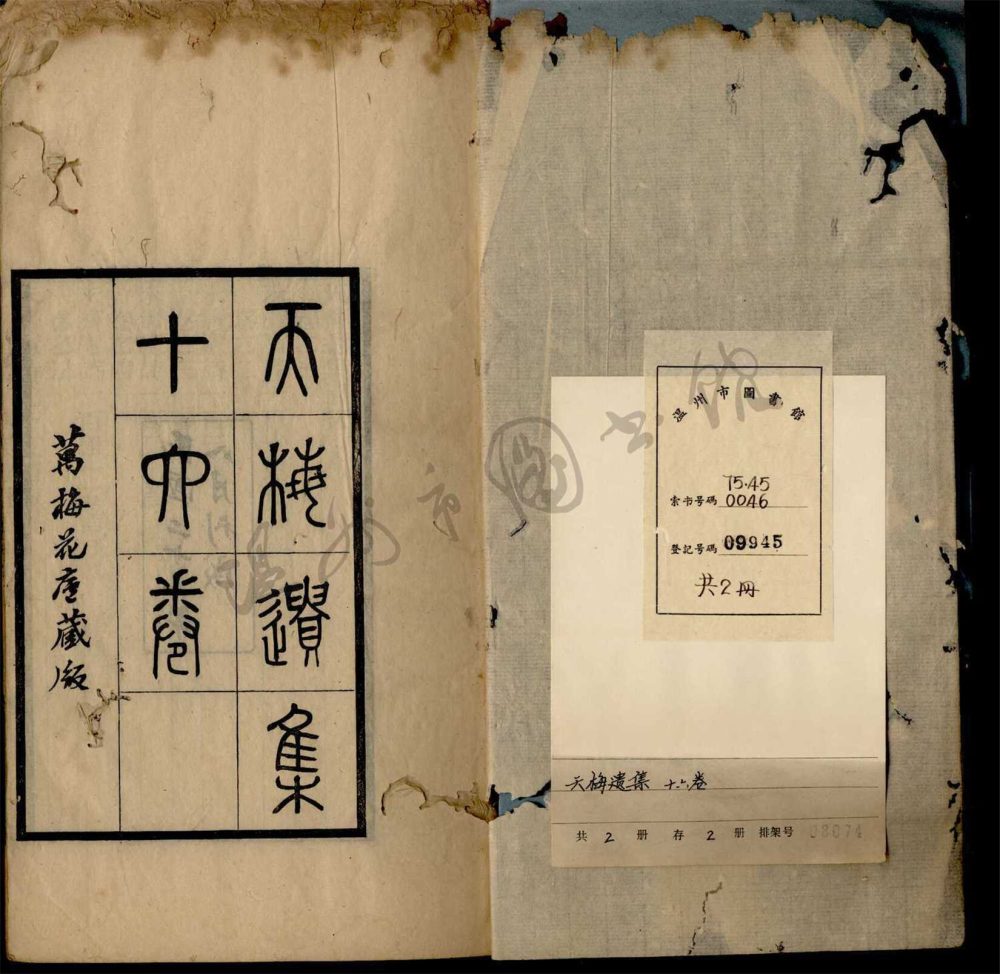 天梅遺集
十六卷
萬梅花廬藏版
温州市圖書館
索书号碼 75·45
0046
登記号碼 09945
共2冊
天梅遺集 十六卷
共 2 册 存 2 册 排架号 08074
温州市圖书馆